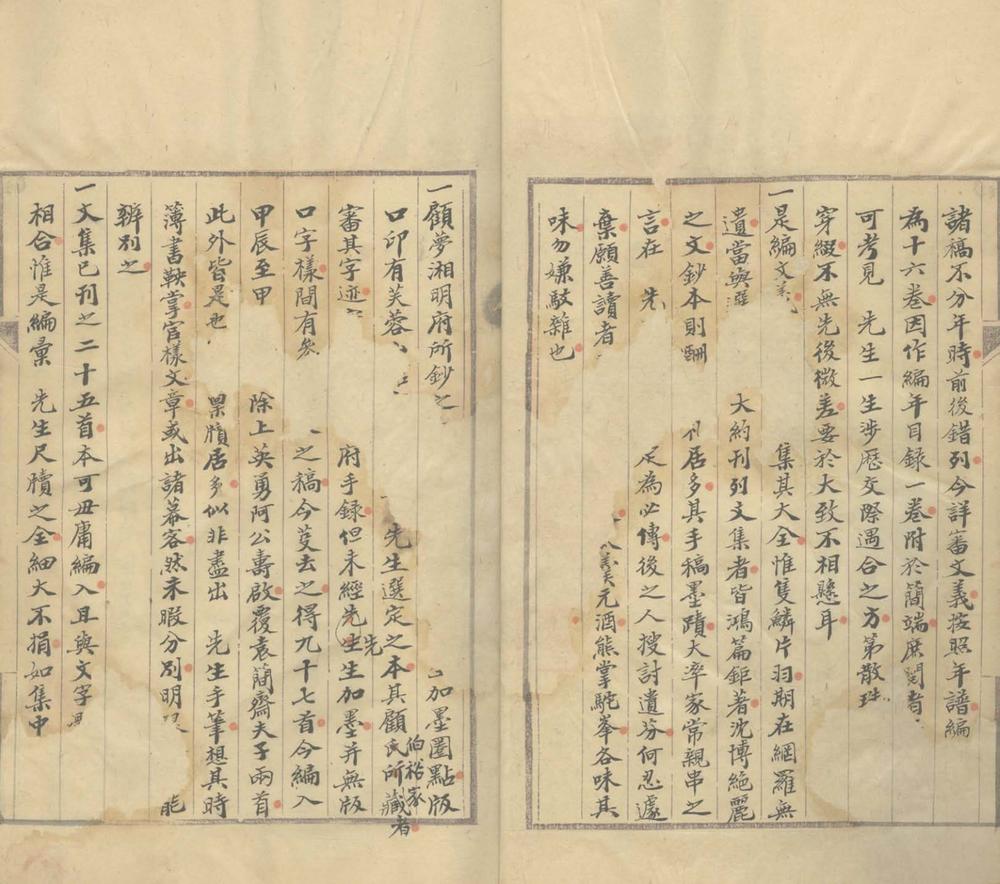 諸稿不分年時前後錯列今詳審文義按照年譜編
為十六卷因作編年目錄一卷附於簡端庶閱者
可考見　先生一生涉歷交際遇合之方第散珠
穿綴不無先後微差要於大致不相懸耳
一是編文　集其大全惟隻鱗片羽期在網羅無
遺當與選　大約刊列文集者皆鴻篇鉅著沈博絕麗
之文鈔本則酬　居多其手稿墨蹟大率家常親串之
言在　先　足為必傳後之人搜討遺芬何忍遽
棄願善讀者　元酒熊掌駝峯各味其
味勿嫌駁雜也
一顧夢湘明府所鈔之　加墨圈點版
口印有芙蓉　先生選定之本其顧氏伯裕家所藏者
審其字迹　府手錄但未經先生先生加墨并無版
口字樣間有　之稿今芟去之得九十七首今編入
甲辰至甲　除上英勇阿公壽啟覆袁簡齋夫子兩首
此外皆是也　稟牘居多似非盡出　先生手筆想其時
簿書鞅掌官樣文章或出諸幕客然未暇分別明　能
辨別之
一文集已刊之二十五首本可毋庸編入且與文字
相合惟是編彙　先生尺牘之全細大不捐如集中